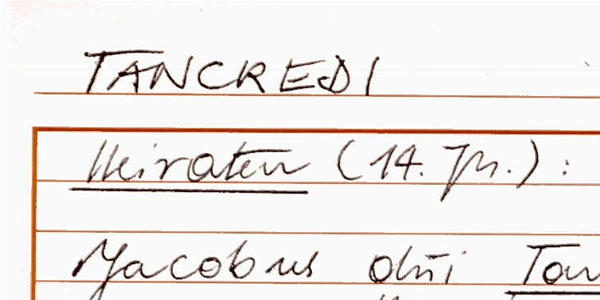 TANCREDI
Heiraten (14. Jh.):
Jacobus dni Tan